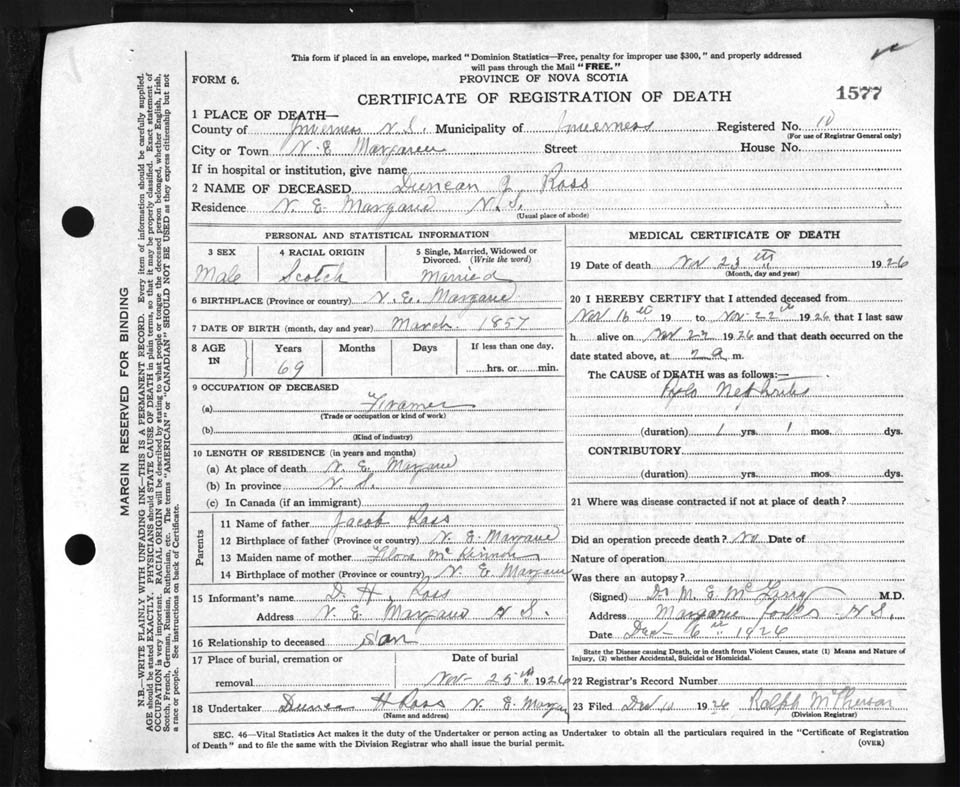 This form if placed in an envelope, marked "Dominion Statistics—Free, penalty for improper use $300," and properly addressed
will pass through the Mail "FREE."
FORM 6.
PROVINCE OF NOVA SCOTIA
CERTIFICATE OF REGISTRATION OF DEATH
1577
1 PLACE OF DEATH—
County of Inverness N.S. Municipality of Inverness Registered No. 10
(For use of Registrar General only)
City or Town N. E Margaree Street House No.
If in hospital or institution, give name
2 NAME OF DECEASED Duncan J. Ross
Residence N. E Margarie N. S.
(Usual place of abode)
PERSONAL AND STATISTICAL INFORMATION
3 SEX 4 RACIAL ORIGIN 5 Single, Married, Widowed or Divorced. (Write the word)
Male Scotch Married
6 BIRTHPLACE (Province or country) N. E. Margarie
7 DATE OF BIRTH (month, day and year) March 1857
8 AGE IN Years Months Days If less than one day,
69 hrs. or min.
9 OCCUPATION OF DECEASED
(a) Framer
(Trade or occupation or kind of work)
(b)
(Kind of industry)
10 LENGTH OF RESIDENCE (in years and months)
(a) At place of death N. E. Margarie
(b) In province N. S.
(c) In Canada (if an immigrant)
Parents
11 Name of father Jacob Ross
12 Birthplace of father (Province or country) N. E Margarie
13 Maiden name of mother Flora McKinnon
14 Birthplace of mother (Province or country) N. E Margarie
15 Informant's name D. H. Ross
Address N. E. Margarie N S.
16 Relationship to deceased son
17 Place of burial, cremation or removal Date of burial
Nov 25th 1926
18 Undertaker Duncan H Ross N. E. Margarie
(Name and address)
MEDICAL CERTIFICATE OF DEATH
19 Date of death Nov 23th 1926
(Month, day and year)
20 I HEREBY CERTIFY that I attended deceased from
Nov 16th 19 to Nov 22th 1926 that I last saw
h alive on Nov 22 1926 and that death occurred on the
date stated above, at 2 a m.
The CAUSE of DEATH was as follows:—
Nephritis
(duration) 1 yrs. 1 mos. dys.
CONTRIBUTORY
(duration) yrs. mos. dys.
21 Where was disease contracted if not at place of death?
Did an operation precede death? No Date of
Nature of operation
Was there an autopsy?
(Signed) Dr M. E. McGarry M.D.
Address Margaree Forks N S.
Date Dec 6th 1926
State the Disease causing Death, or in death from Violent Causes, state (1) Means and Nature of
Injury, (2) whether Accidental, Suicidal or Homicidal.
22 Registrar's Record Number
23 Filed Dec 10 1926 Ralph McPherson
(Division Registrar)
SEC. 46—Vital Statistics Act makes it the duty of the Undertaker or person acting as Undertaker to obtain all the particulars required in the "Certificate of Registration
of Death" and to file the same with the Division Registrar who shall issue the burial permit.
(OVER)
MARGIN RESERVED FOR BINDING
N.B.—WRITE PLAINLY WITH UNFADING INK—THIS IS A PERMANENT RECORD. Every item of information should be carefully supplied.
AGE should be stated EXACTLY. PHYSICIANS should STATE CAUSE OF DEATH in plain terms, so that it may be properly classified. Exact statement of
OCCUPATION is very important. RACIAL ORIGIN will be described by stating to what people or tongue the deceased person belonged, whether English, Irish,
Scotch, French, German, Russian, Ruthenian, etc. The terms "AMERICAN" or "CANADIAN" SHOULD NOT BE USED as they express citizenship but not
a race or people. See instructions on back of Certificate.